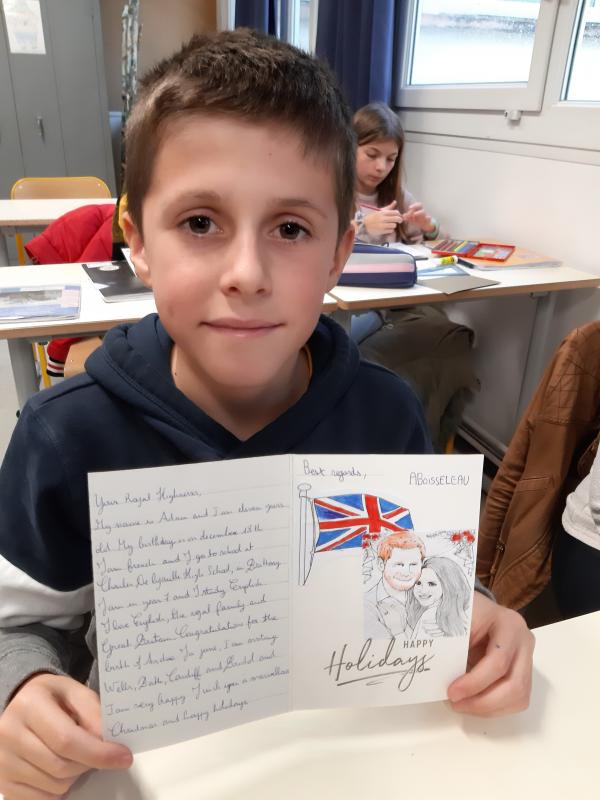 Your Royal Highness,
My name is Adam and I am eleven years
old. My birthday is on december 13th
I am french and I go to school at
Charles De Gaulle High School, in Brittany.
I am in year 7 and I study English
I love English, the royal family and
Great Britain. Congratulations for the
birth of Archie. In june, I am visiting
Wells, Bath, Cardiff and Bristol and
I am very happy. I wish you a marvellous
Christmas and happy holidays
Best regards,
ABOISSELEAU
HAPPY
Holidays